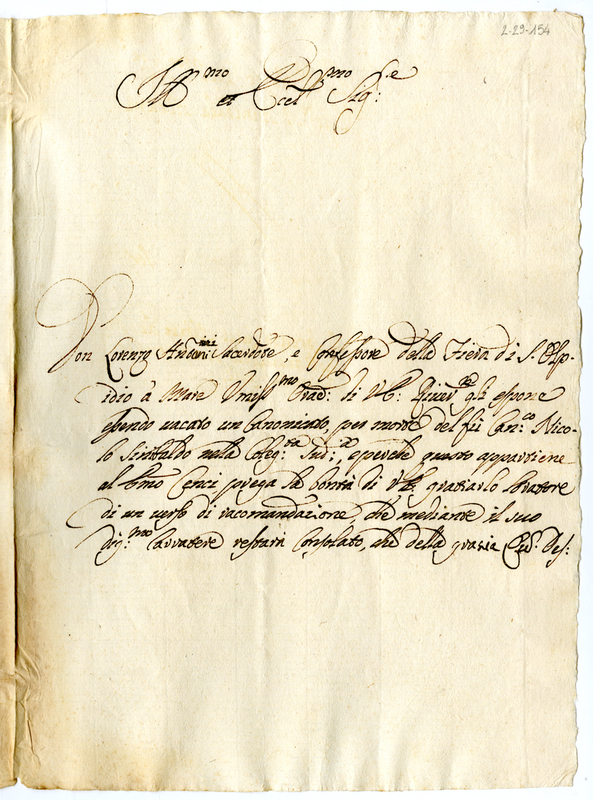 2-29-154
Ill.mo et Eccel.mo Sig.re
Don Lorenzo Sacerdote, e Confessore della Fiera di S. Elpi-
dio à Mare Umiliss.mo di V.E. gli espone
essendo vacato un Canonicato, per morte del fù Can.co Nico-
lò Sinibaldo nella sud.a, e perche questo appartiene
al Cenci prega la bontà di V.E. gratiarlo
di un verso di racomandazione che mediante il suo
dig.mo Carratere restarà Consolato, che della grazia